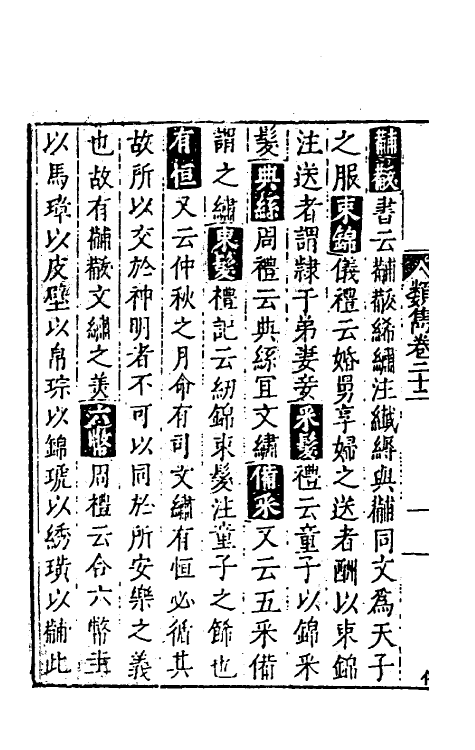 黼黻書云黼黻絺繡注纖縟與黼同文為天子
之服束錦儀禮云婚舅享婦之送者酬以束錦
注送者謂隸子弟妻妾采髮禮云童子以錦采
髮典絲周禮云典絲宜文繡備采又云五采備
謂之繡束髮禮記云紛錦束髮注童子之飾也
有恒又云仲秋之月命有司文繡有恒必循其
故所以交於神明者不可以同於所安樂之義
也故有黼黻文繡之美六幣周禮云合六幣圭
以馬璋以皮璧以帛琮以錦琥以綉璜以黼此
類雋卷二十二